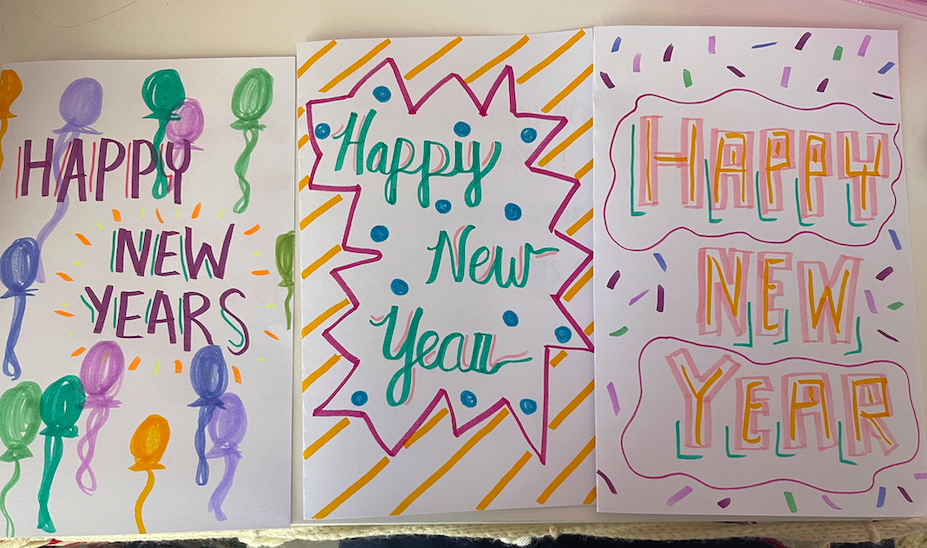 HAPPY
NEW
YEARS
Happy
New
Year
HAPPY
NEW
YEAR